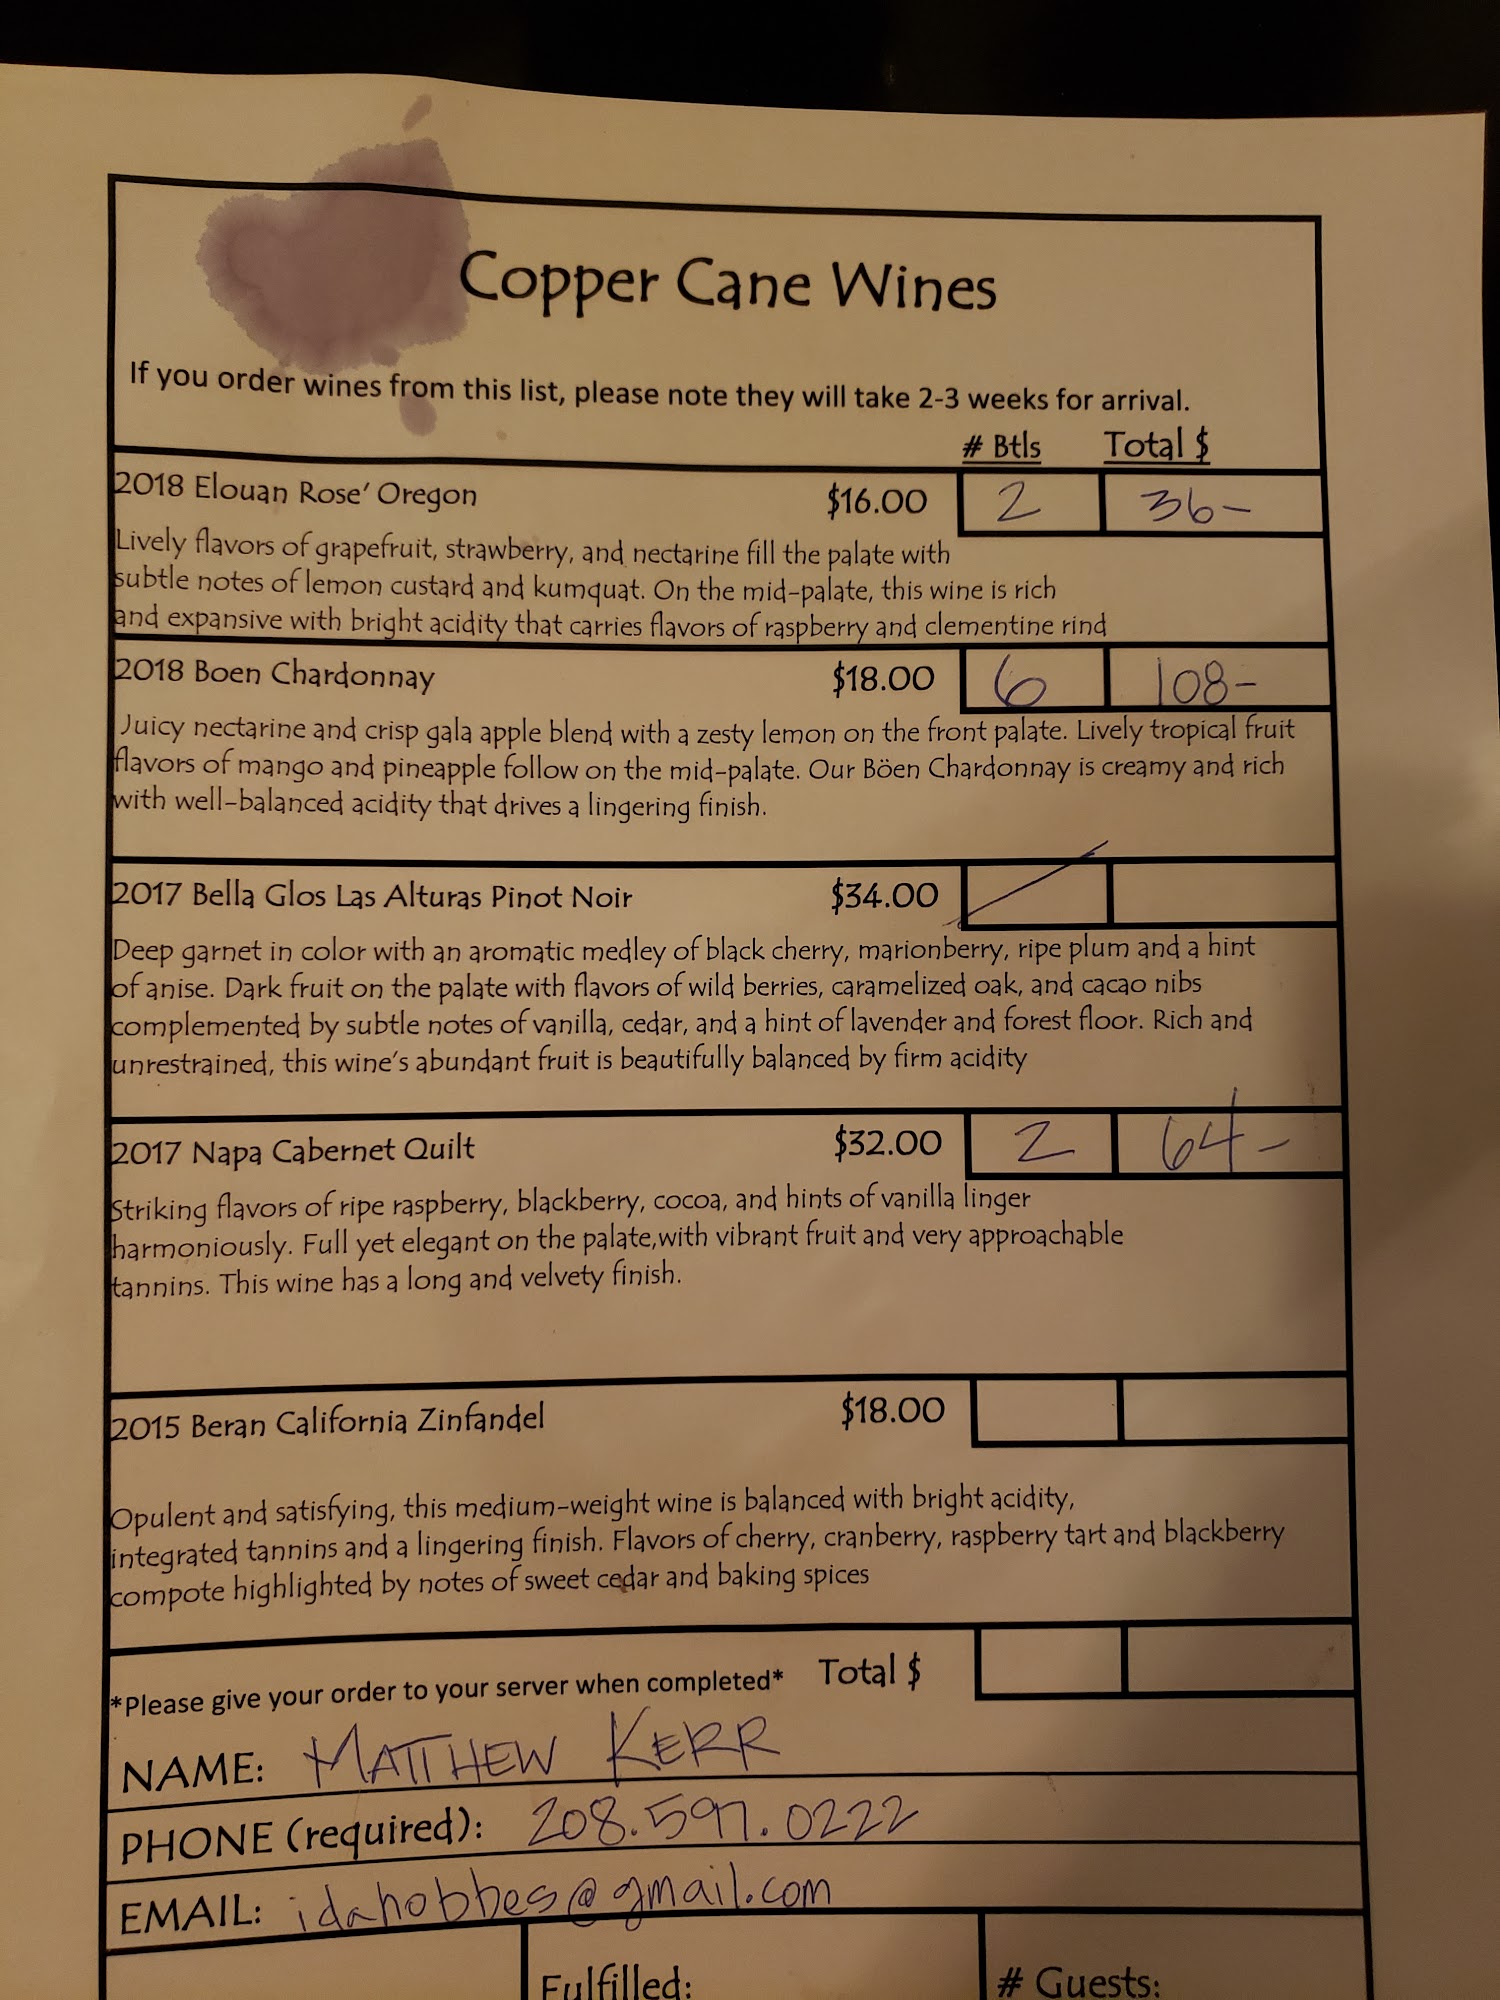 Copper Cane Wines
If you order wines from this list, please note they will take 2-3 weeks for arrival.
# Btls Total $
2018 Elouan Rose' Oregon $16.00 2 36-
Lively flavors of grapefruit, strawberry, and nectarine fill the palate with
subtle notes of lemon custard and kumquat. On the mid-palate, this wine is rich
and expansive with bright acidity that carries flavors of raspberry and clementine rind
2018 Boen Chardonnay $18.00 6 108-
Juicy nectarine and crisp gala apple blend with a zesty lemon on the front palate. Lively tropical fruit
flavors of mango and pineapple follow on the mid-palate. Our Böen Chardonnay is creamy and rich
with well-balanced acidity that drives a lingering finish.
2017 Bella Glos Las Alturas Pinot Noir $34.00
Deep garnet in color with an aromatic medley of black cherry, marionberry, ripe plum and a hint
of anise. Dark fruit on the palate with flavors of wild berries, caramelized oak, and cacao nibs
complemented by subtle notes of vanilla, cedar, and a hint of lavender and forest floor. Rich and
unrestrained, this wine's abundant fruit is beautifully balanced by firm acidity
2017 Napa Cabernet Quilt $32.00 2 64-
Striking flavors of ripe raspberry, blackberry, cocoa, and hints of vanilla linger
harmoniously. Full yet elegant on the palate,with vibrant fruit and very approachable
tannins. This wine has a long and velvety finish.
2015 Beran California Zinfandel $18.00
Opulent and satisfying, this medium-weight wine is balanced with bright acidity,
integrated tannins and a lingering finish. Flavors of cherry, cranberry, raspberry tart and blackberry
compote highlighted by notes of sweet cedar and baking spices
*Please give your order to your server when completed* Total $
NAME: MATTHEW KERR
PHONE (required): 208.597.0222
EMAIL: idahobbes@gmail.com
Fulfilled: # Guests: